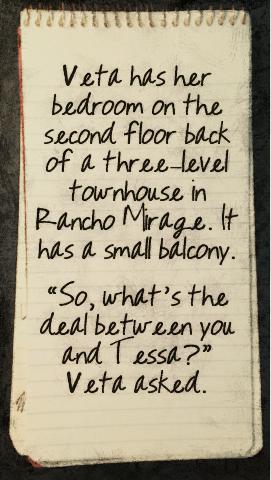 Veta has her
bedroom on the
second floor back
of a three-level
townhouse in
Rancho Mirage. It
has a small balcony.
“So, what's the
deal between you
and Tessa?”
Veta asked.